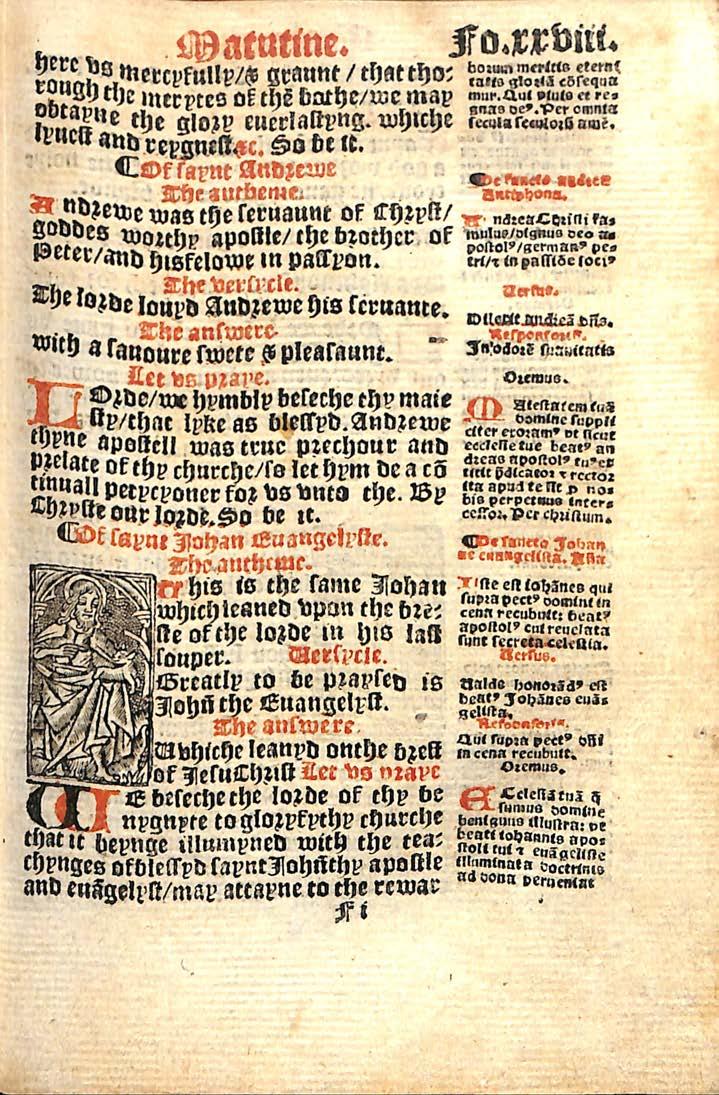 Matutine.
Fo.xxviii.
here vs mercyfully/& graunt / that tho⸗
rough the merytes of thē bothe/we may
obtayne the glory euerlastyng. whiche
lyuest and reygnest.&c. So be it.
¶Of saynt Andrewe
The antheme.
Andrewe was the seruaunt of Chryst/
goddes worthy apostle/ the brother of
Peter/and hisfelowe in passyon.
The versycle.
The lorde louyd Andrewe his seruante.
The answere
with a sauoure swete & pleasaunt.
Let vs praye.
LOrde/we hymbly beseche thy maie
sty/that lyke as blessyd. Andrewe
thyne apostell was true prechour and
prelate of thy churche/so let hym be a cō
tinuall petycyoner for vs vnto the. By
Chryste our lorde. So be it.
¶Of saynt Johan Euangelyste.
The antheme.
This is the same Johan
which leaned vpon the bre⸗
ste of the lorde in his last
souper. Versycle.
Greatly to be praysed is
Johñ the Euangelyst.
The answere.
Whiche leanyd onthe brest
of JesuChrist Let vs praye
WE beseche the lorde of thy be
nygnyte to gloryfythy churche
that it beynge illumyned with the tea⸗
chynges of blessyd saynt Johñthy apostle
and euāgelyst/may attayne to the rewar
F i
horum meritis eterni
tatis gloriā cōsequa
mur. Qui viuis et re⸗
gnas deꝰ. Per omnia
secula seculorū amē.
¶De sancto andrea
Antiphona.
Andrea Christi fa⸗
mulus/dignus deo a⸗
postolꝰ/germanꝰ pe⸗
tri/⁊ in passiōe sociꝰ
Versus.
Dilexit andreā dñs.
Responsoriū.
In odorē suauitatis
Oremus.
MAiestatem tuā
domine suppli
citer exoramꝰ vt sicut
ecclesie tue beatꝰ an
dreas apostolꝰ tuꝰ ex
titit p̄dicator ⁊ rector
ita apud te sit p no⸗
bis perpetuus inter⸗
cessor. Per christum.
¶De sancto Johan
ne euangelistā. Aña
Iste est iohānes qui
supra pectꝰ domini in
cena recubuit: beatꝰ
apostolꝰ cui reuelata
sunt secreta celestia.
Versus.
Valde honorādꝰ est
beatꝰ Johānes euā⸗
gelista.
Responsoriū.
Qui supra pectꝰ dñi
in cena recubuit.
Oremus.
ECclesiā tuā q̄
sumus domine
benignus illustra: vt
beati iohannis apo⸗
stoli tui ⁊ euāgeliste
illuminata doctrinis
ad dona perueniat